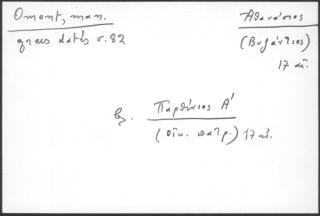 Omont, man.
grecs datés σ. 82
Ἀθανάσιος
(Βυζάντιος)
17 αἰ.
βλ. Παρθένιος Α΄
(οἰκ. πατρ.) 17 αἰ.